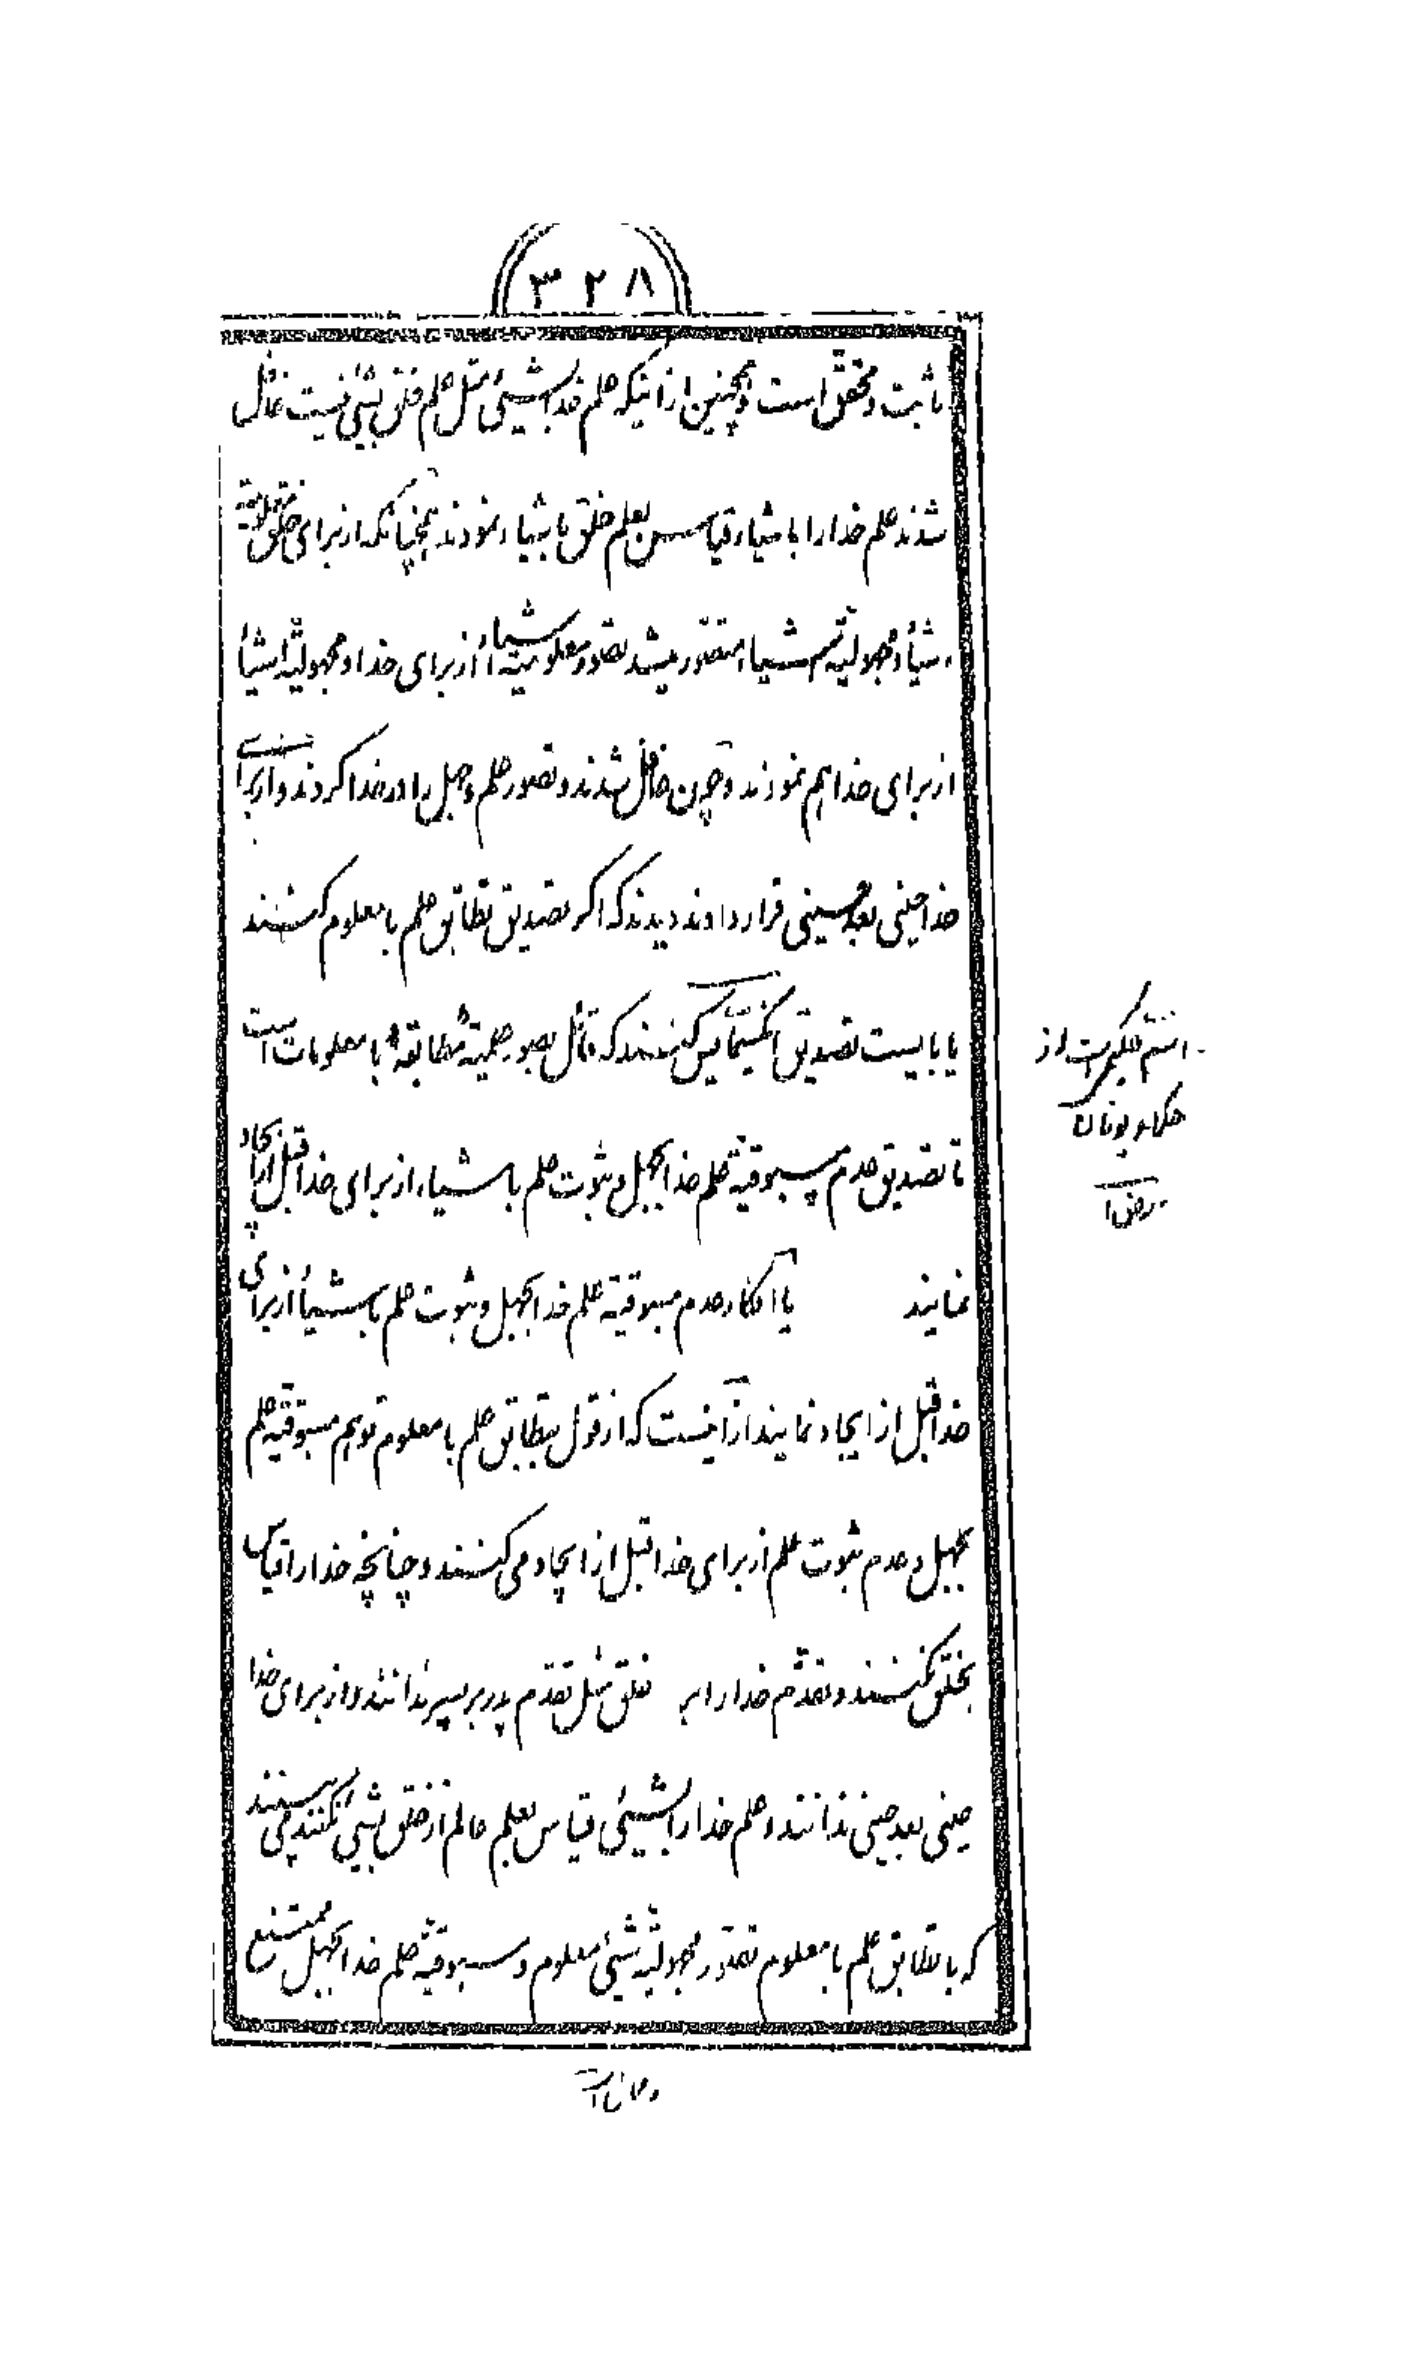 ۳۲۸
ثابت و محقق است و همچنین از اینکه علم خدا بشیئی مثل علم خلق بشیئی نیست غافل
شدند علم خدا را باشیاء قیاس بعلم خلق باشیاء نمودند همچنانکه از برای خلق معلومیة
اشیاء و مجهولیة اشیاء متصور میشد تصور معلومیة اشیاء از برای خدا و مجهولیة اشیاء
از برای خدا هم نمودند و چون غافل شدند و تصور علم و جهل را در خدا کردند و از برای
خدا حینی بعد حینی قرار دادند دیدند که اگر تصدیق تطابق علم با معلوم کنند
یا بایست تصدیق کنند که قائل بصور علمیة مطابقة با معلومات است
تا تصدیق عدم مسبوقیة علم خدا بجهل و ثبوت علم باشیاء از برای خدا قبل از ایجاد
نمایند یا انکار عدم مسبوقیة علم خدا بجهل و ثبوت علم باشیاء از برای
خدا قبل از ایجاد نمایند از اینست که از قول بتطابق علم با معلوم توهم مسبوقیة علم
بجهل و عدم ثبوت علم از برای خدا قبل از ایجاد می کنند و چنانچه خدا را قیاس
بخلق نکنند و تقدم خدا را بر خلق مثل تقدم پدر بر پسر ندانند و از برای خدا
حینی بعد حینی ندانند و علم خدا را بشیئی قیاس بعلم عالم از خلق بشیئی نکنند می بینند
که با تطابق علم با معلوم تصور مجهولیة شیئی معلوم و مسبوقیة علم خدا بجهل ممتنع
اسم حکیمی است از
حکماء یونان
و محال است